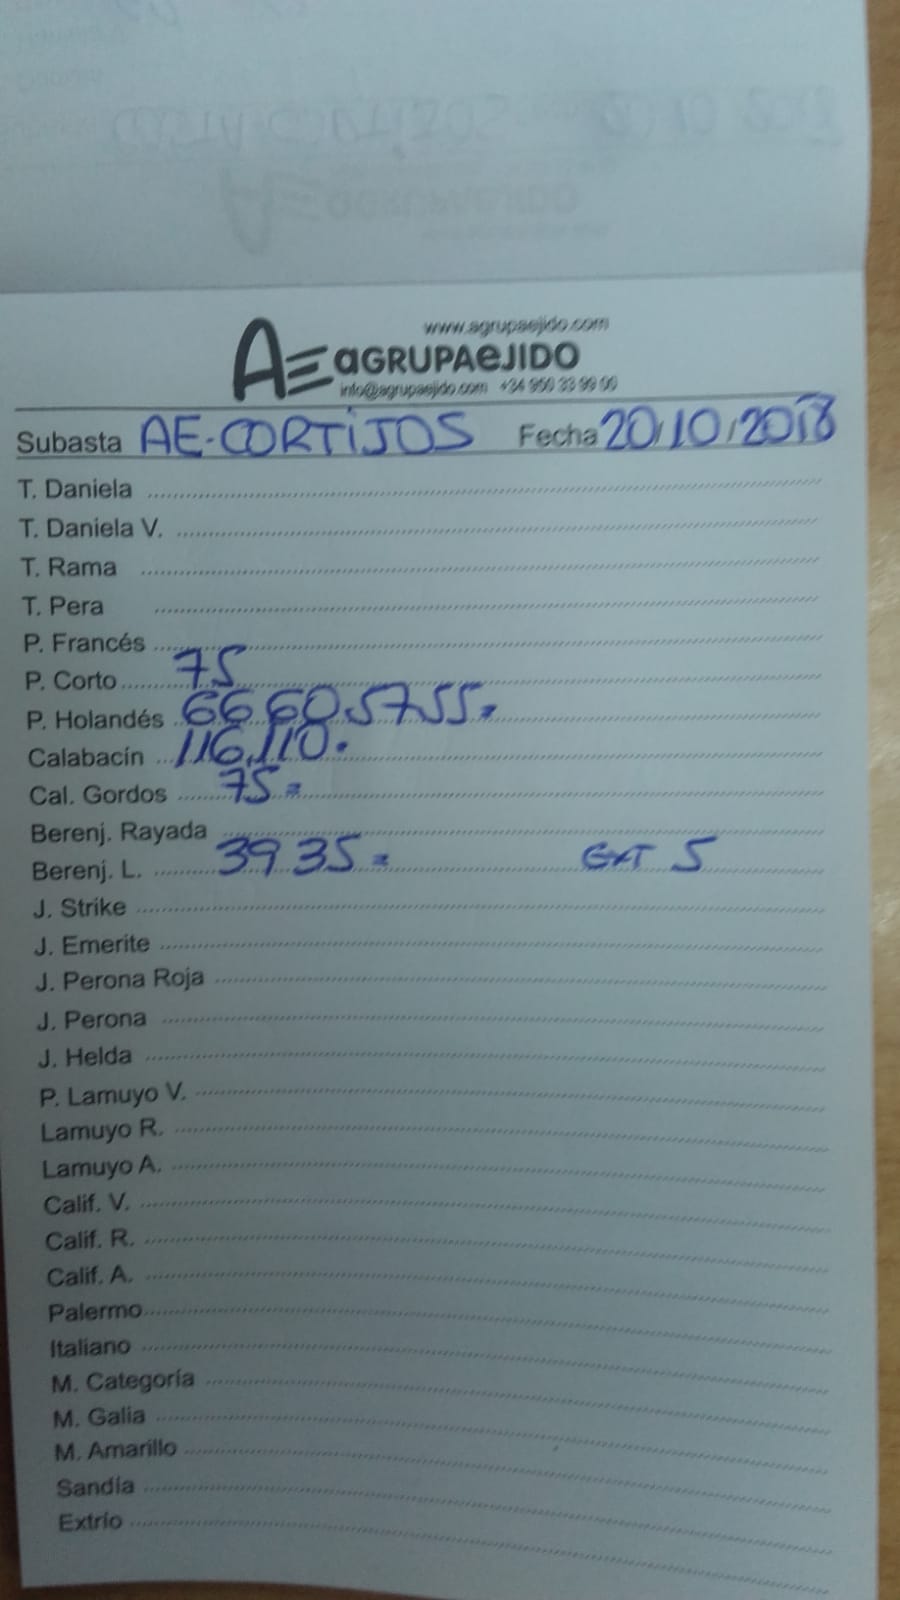 www.agrupaejido.com
AE aGRUPAeJIDO
info@agrupaejido.com +34 950 33 99 00
Subasta AE-CORTIJOS Fecha 20/10/2018
T. Daniela
T. Daniela V.
T. Rama
T. Pera
P. Francés
P. Corto 75
P. Holandés 66 60.5755.=
Calabacín 116,110.
Cal. Gordos 75 =
Berenj. Rayada
Berenj. L. 39 35 = EXT 5
J. Strike
J. Emerite
J. Perona Roja
J. Perona
J. Helda
P. Lamuyo V.
Lamuyo R.
Lamuyo A.
Calif. V.
Calif. R.
Calif. A.
Palermo
Italiano
M. Categoría
M. Galia
M. Amarillo
Sandía
Extrío